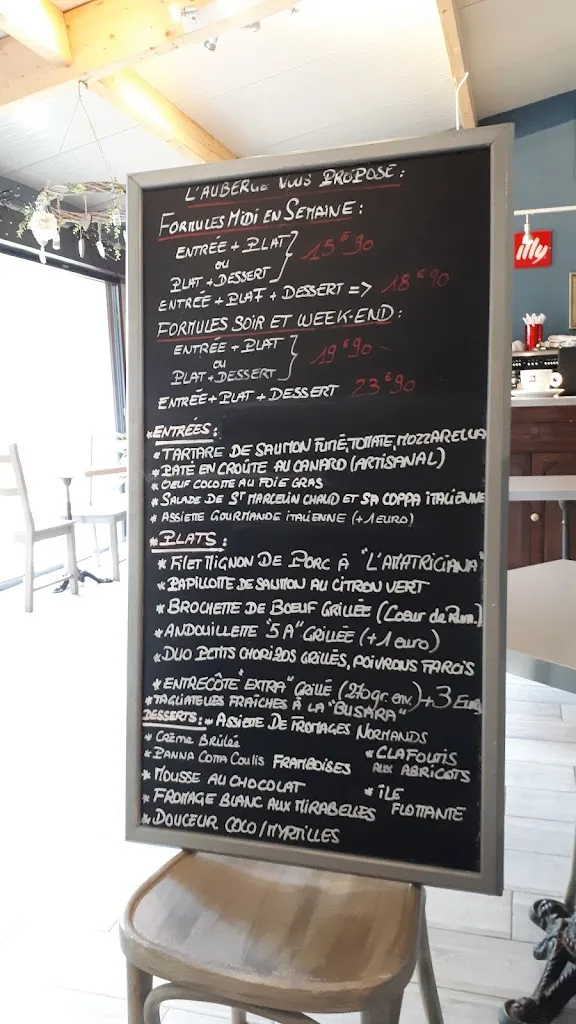 L'AUBERGE VOUS PROPOSE :
FORMULES MIDI EN SEMAINE :
ENTRÉE + PLAT
OU
PLAT + DESSERT
15€90
ENTRÉE + PLAT + DESSERT => 18€90
FORMULES SOIR ET WEEK-END :
ENTRÉE + PLAT
OU
PLAT + DESSERT
19€90
ENTRÉE + PLAT + DESSERT 23€90
* ENTRÉES :
* TARTARE DE SAUMON FUMÉ, TOMATE, MOZZARELLA
* PATÉ EN CROÛTE AU CANARD (ARTISANAL)
* OEUF COCOTTE AU FOIE GRAS
* SALADE DE ST MARCELIN CHAUD ET SA COPPA ITALIENNE
* ASSIETTE GOURMANDE ITALIENNE (+1 EURO)
* PLATS :
* FILET MIGNON DE PORC À "L'AMATRICIANA"
* PAPILLOTE DE SAUMON AU CITRON VERT
* BROCHETTE DE BOEUF GRILLÉE (Coeur de Rum.)
* ANDOUILLETTE "5 A" GRILLÉE (+1 euro)
* DUO PETITS CHORIZOS GRILLÉS, POIVRONS FARCIS
* ENTRECÔTE "EXTRA" GRILLÉ (270gr. env.) +3 Euros
* TAGLIATELLES FRAÎCHES À LA "BUSARA"
DESSERTS : * ASSIETTE DE FROMAGES NORMANDS
* CRÈME BRÛLÉE
* PANNA COTTA COULIS FRAMBOISES
* MOUSSE AU CHOCOLAT
* FROMAGE BLANC AUX MIRABELLES
* DOUCEUR COCO/MYRTILLES
* CLAFOUTIS
AUX ABRICOTS
* ILE
FLOTTANTE
illy